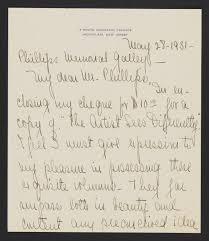 May 28-1931-
Phillips Memorial Gallery-
My dear Mr. Phillips,
In en-
closing my cheque for $10.00 for a
copy of "The Artist Sees Differently"
I feel I must give expression to
my pleasure in possessing these
exquisite volumes - They far
surpass both in beauty and
content any preconceived idea